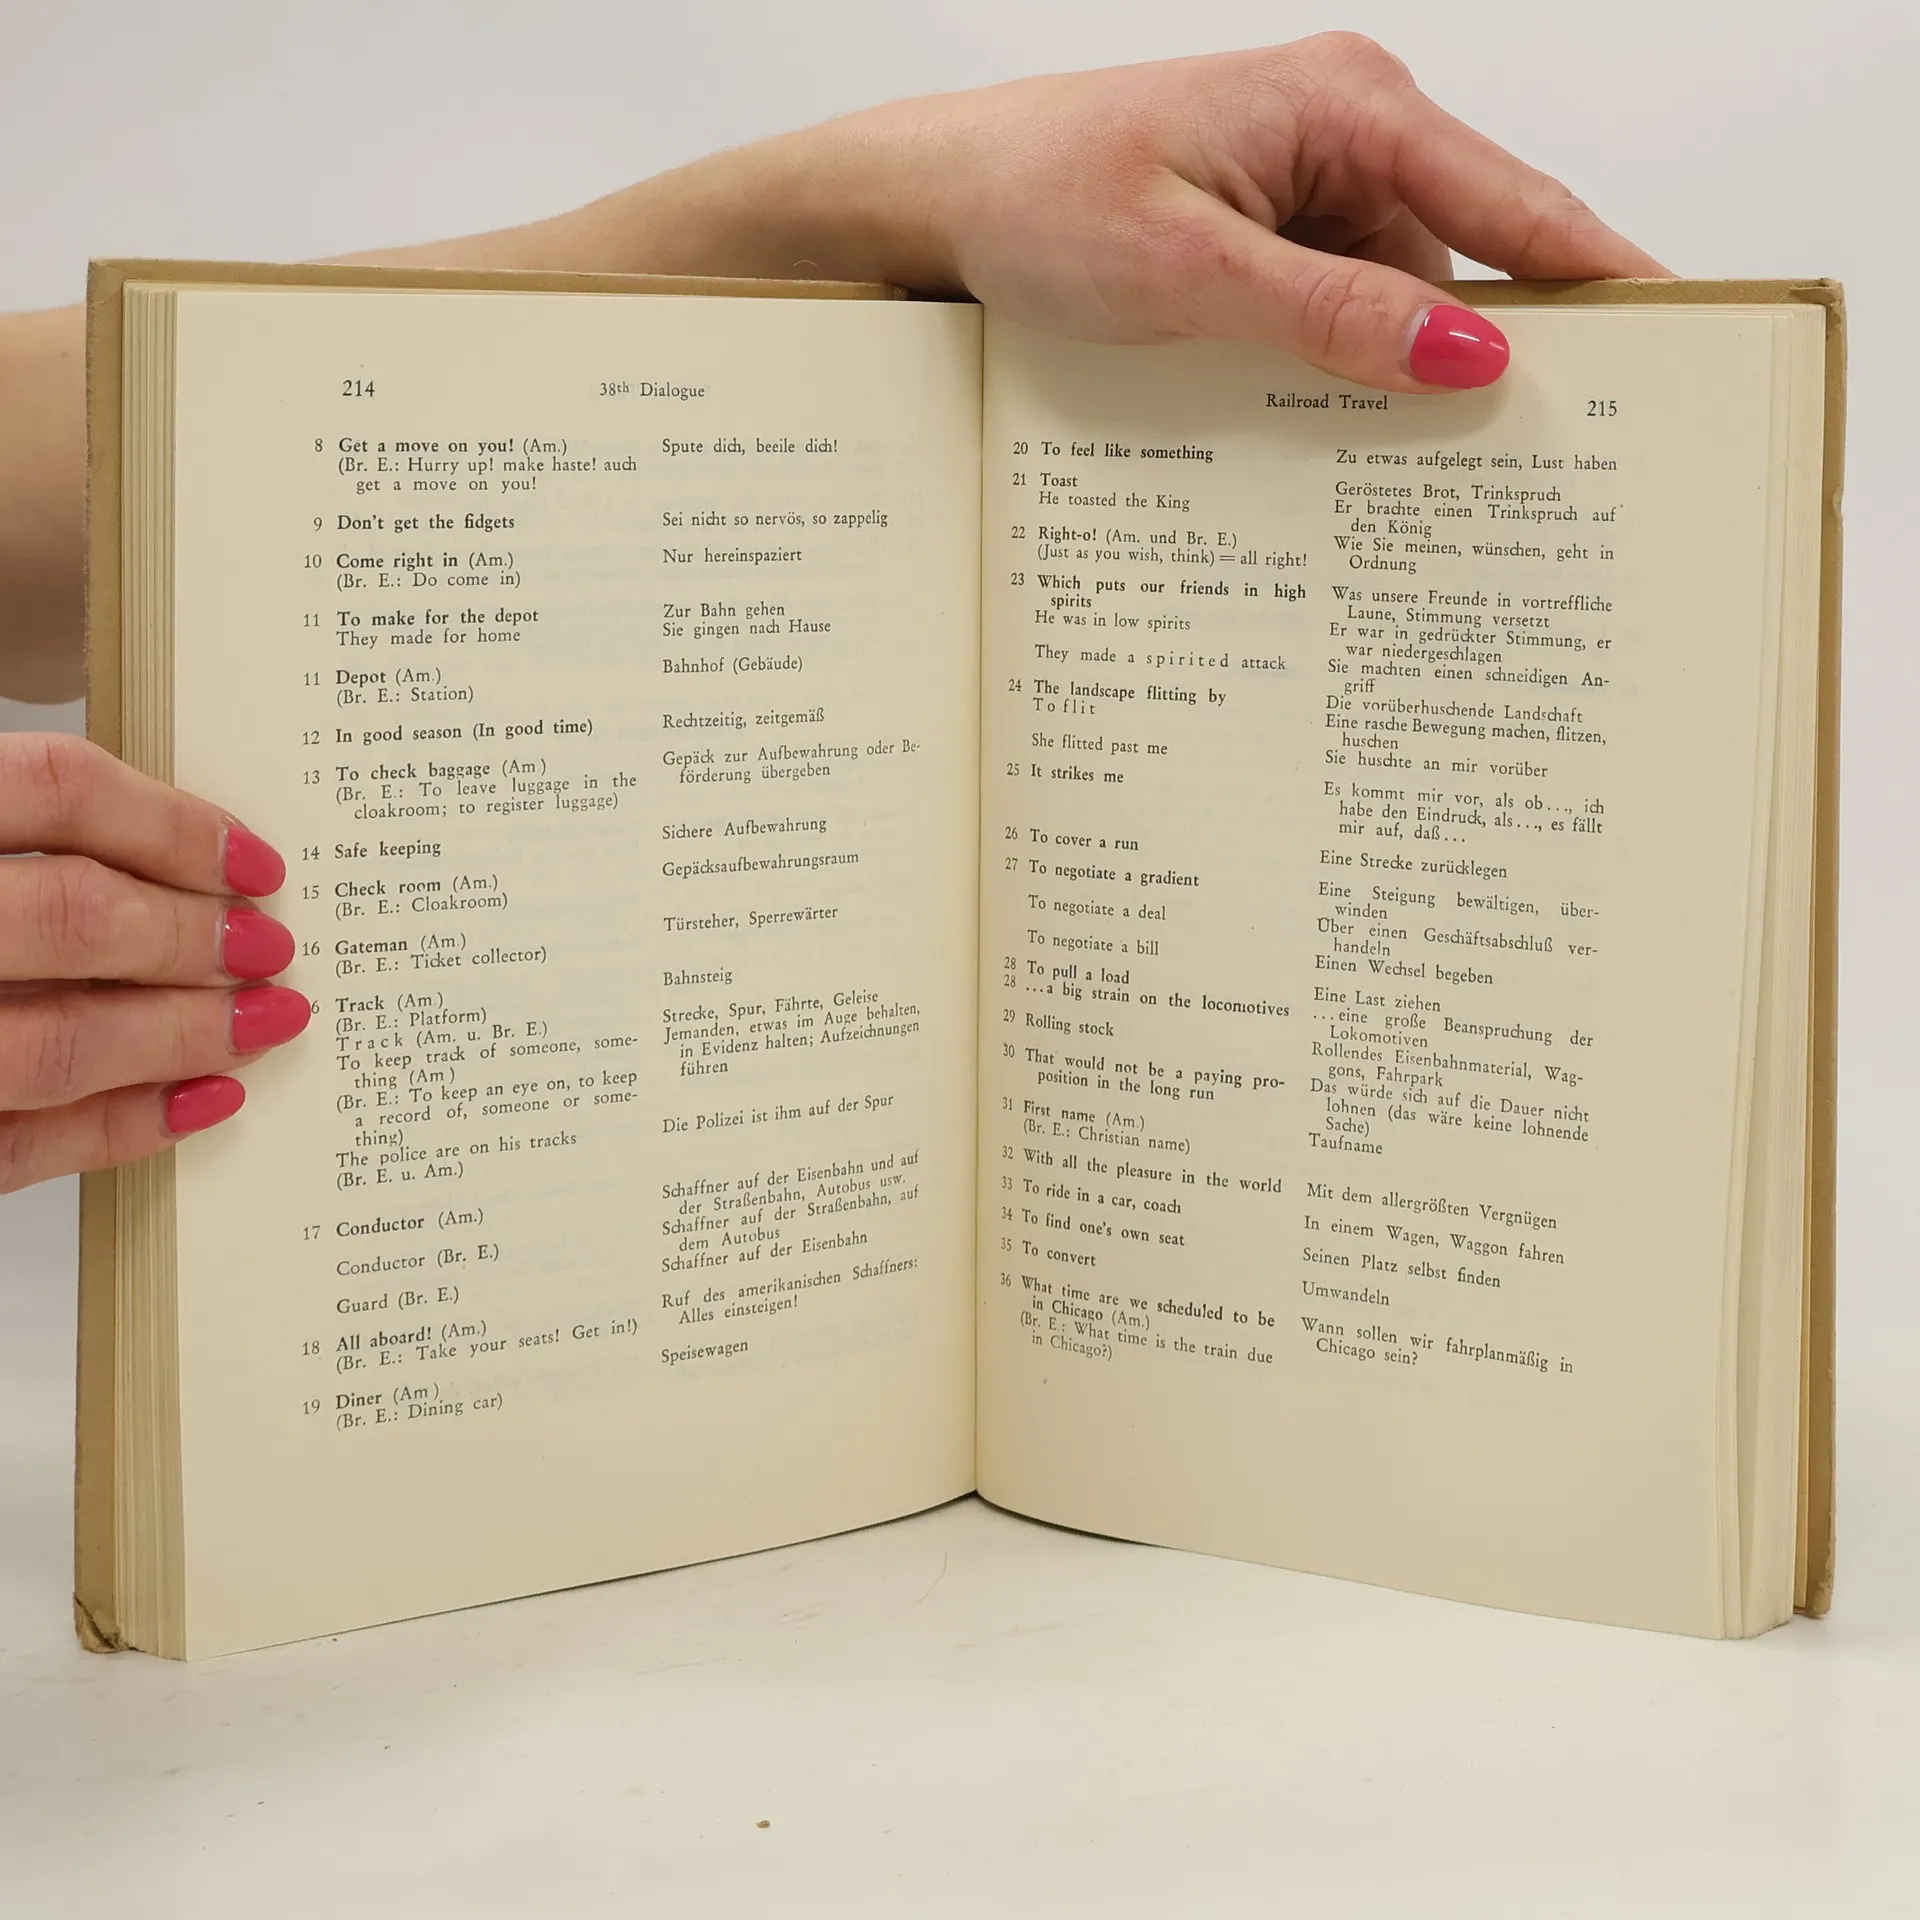 214
38th Dialogue
8 Get a move on you! (Am.)
(Br. E.: Hurry up! make haste! auch
get a move on you!
Spute dich, beeile dich!
9 Don't get the fidgets
Sei nicht so nervös, so zappelig
10 Come right in (Am.)
(Br. E.: Do come in)
Nur hereinspaziert
11 To make for the depot
They made for home
Zur Bahn gehen
Sie gingen nach Hause
11 Depot (Am.)
(Br. E.: Station)
Bahnhof (Gebäude)
12 In good season (In good time)
Rechtzeitig, zeitgemäß
13 To check baggage (Am.)
(Br. E.: To leave luggage in the
cloakroom; to register luggage)
Gepäck zur Aufbewahrung oder Be-
förderung übergeben
14 Safe keeping
Sichere Aufbewahrung
15 Check room (Am.)
(Br. E.: Cloakroom)
Gepäcksaufbewahrungsraum
16 Gateman (Am.)
(Br. E.: Ticket collector)
Türsteher, Sperrewärter
6 Track (Am.)
(Br. E.: Platform)
Track (Am. u. Br. E.)
To keep track of someone, some-
thing (Am.)
(Br. E.: To keep an eye on, to keep
a record of, someone or some-
thing)
The police are on his tracks
(Br. E. u. Am.)
Bahnsteig
Strecke, Spur, Fährte, Geleise
Jemanden, etwas im Auge behalten,
in Evidenz halten; Aufzeichnungen
führen
Die Polizei ist ihm auf der Spur
17 Conductor (Am.)
Conductor (Br. E.)
Guard (Br. E.)
Schaffner auf der Eisenbahn und auf
der Straßenbahn, Autobus usw.
Schaffner auf der Straßenbahn, auf
dem Autobus
Schaffner auf der Eisenbahn
18 All aboard! (Am.)
(Br. E.: Take your seats! Get in!)
Ruf des amerikanischen Schaffners:
Alles einsteigen!
19 Diner (Am.)
(Br. E.: Dining car)
Speisewagen
Railroad Travel
215
20 To feel like something
Zu etwas aufgelegt sein, Lust haben
21 Toast
He toasted the King
Geröstetes Brot, Trinkspruch
Er brachte einen Trinkspruch auf
den König
22 Right-o! (Am. und Br. E.)
(Just as you wish, think) = all right!
Wie Sie meinen, wünschen, geht in
Ordnung
23 Which puts our friends in high
spirits
He was in low spirits
They made a spirited attack
Was unsere Freunde in vortreffliche
Laune, Stimmung versetzt
Er war in gedrückter Stimmung, er
war niedergeschlagen
Sie machten einen schneidigen An-
griff
24 The landscape flitting by
To flit
She flitted past me
Die vorüberhuschende Landschaft
Eine rasche Bewegung machen, flitzen,
huschen
Sie huschte an mir vorüber
25 It strikes me
Es kommt mir vor, als ob..., ich
habe den Eindruck, als..., es fällt
mir auf, daß...
26 To cover a run
Eine Strecke zurücklegen
27 To negotiate a gradient
To negotiate a deal
To negotiate a bill
Eine Steigung bewältigen, über-
winden
Über einen Geschäftsabschluß ver-
handeln
Einen Wechsel begeben
28 To pull a load
28 ...a big strain on the locomotives
Eine Last ziehen
...eine große Beanspruchung der
Lokomotiven
29 Rolling stock
Rollendes Eisenbahnmaterial, Wag-
gons, Fahrpark
30 That would not be a paying pro-
position in the long run
Das würde sich auf die Dauer nicht
lohnen (das wäre keine lohnende
Sache)
31 First name (Am.)
(Br. E.: Christian name)
Taufname
32 With all the pleasure in the world
Mit dem allergrößten Vergnügen
33 To ride in a car, coach
In einem Wagen, Waggon fahren
34 To find one's own seat
Seinen Platz selbst finden
35 To convert
Umwandeln
36 What time are we scheduled to be
in Chicago (Am.)
(Br. E.: What time is the train due
in Chicago?)
Wann sollen wir fahrplanmäßig in
Chicago sein?